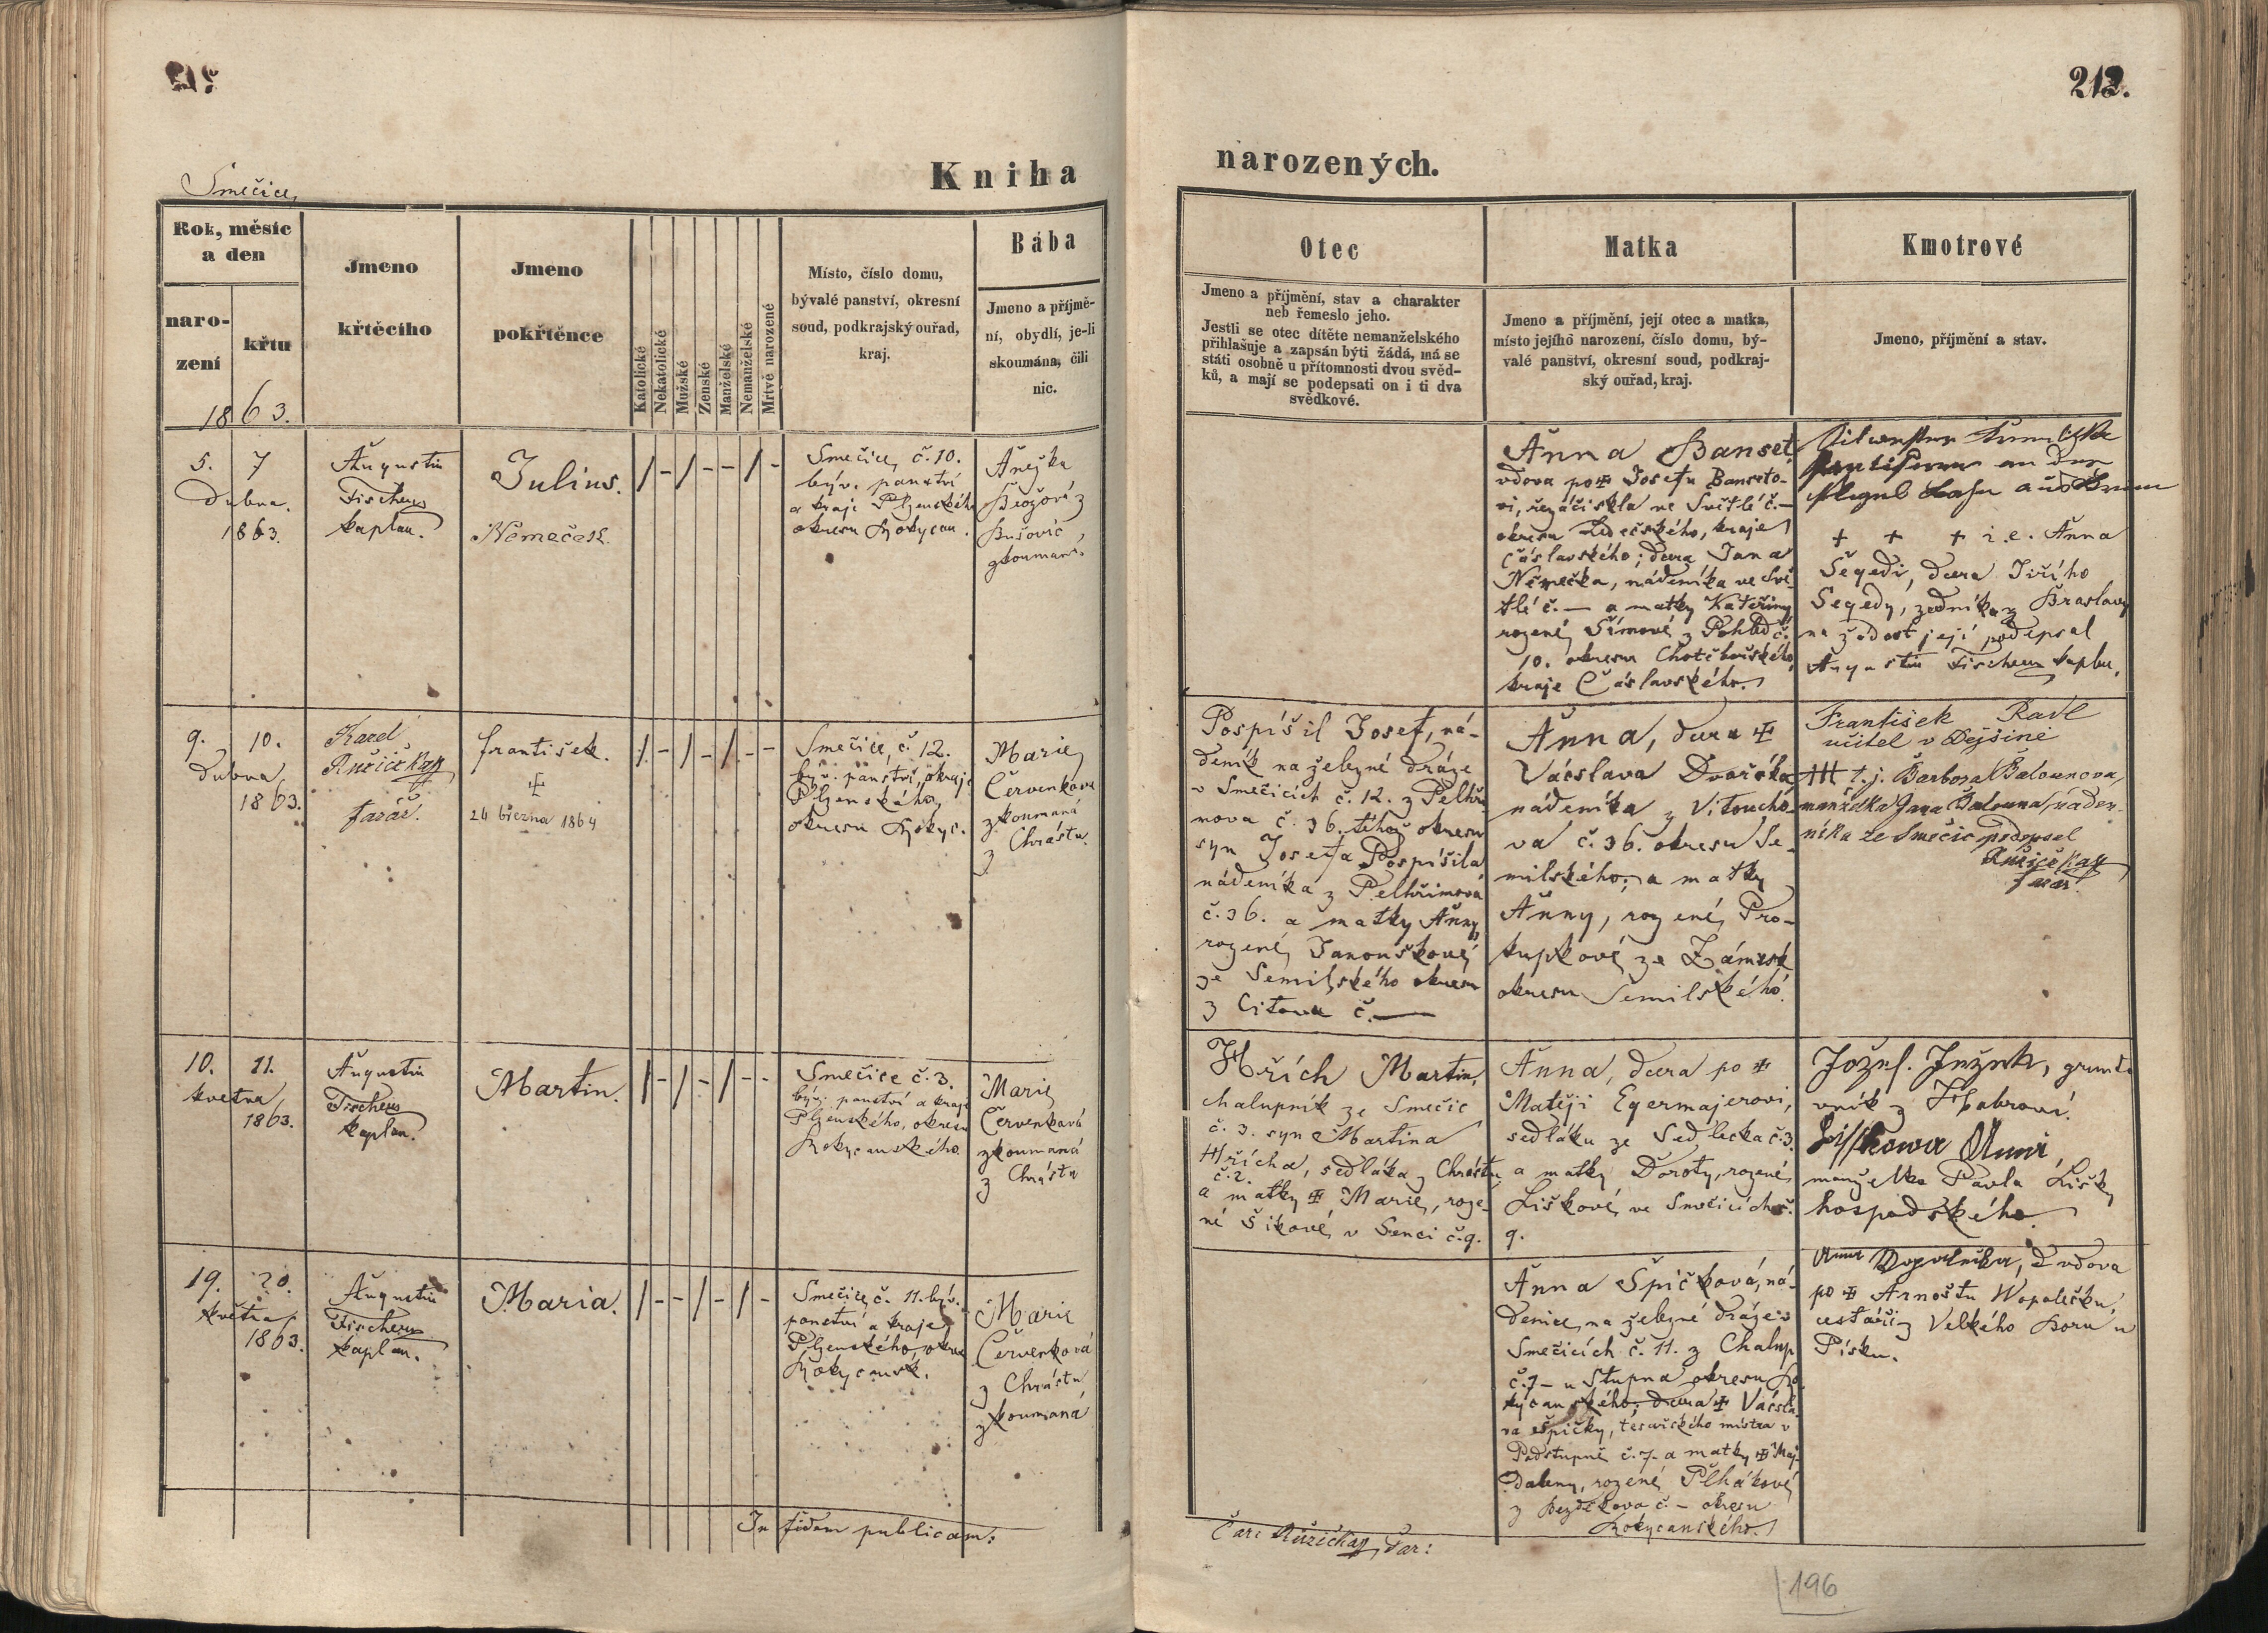 213.
Smečice,
Kniha
narozených.
Rok, měsíc
a den
naro-
zení
křtu
1863.
Jmeno
křtěcího
Jmeno
pokřtěnce
Katolické
Nekatolické
Mužské
Ženské
Manželské
Nemanželské
Mrtvě narozené
Místo, číslo domu,
bývalé panství, okresní
soud, podkrajský ouřad,
kraj.
Bába
Jmeno a příjmě-
ní, obydlí, je-li
skoumána, čili
nic.
Otec
Jmeno a příjmění, stav a charakter
neb řemeslo jeho.
Jestli se otec dítěte nemanželského
přihlašuje a zapsán býti žádá, má se
státi osobně u přítomnosti dvou svěd-
ků, a mají se podepsati on i ti dva
svědkové.
Matka
Jmeno a příjmění, její otec a matka,
místo jejího narození, číslo domu, bý-
valé panství, okresní soud, podkraj-
ský ouřad, kraj.
Kmotrové
Jmeno, příjmění a stav.
5. 7
Dubna.
1863.
Augustin
Fischer
kaplan.
Julius.
Němeček.
/ - / - - / -
Smečice, č. 10.
býv. panství
a kraje Plzenského
okresu Rokycan.
Anežka
z
Bušovic,
zkoumaná.
Anna Banset,
vdova po ✠ Josefu Banseto-
vi, řezáči skla ve Světlé č. —
okresu Ledečského, kraje
Čáslavského; dcera Jana
Němečka, nádeníka ve Svě-
tlé č. — a matky Kateřiny
rozené Šímové z Pohled č.
10. okresu Chotěbořského,
kraje Čáslavského.
+ + + i.e. Anna
Segedi, dcera Jiřího
Segedy, zedníka z Braslavy
na žádost její podepsal
Augustin Fischer kaplan.
9. 10.
Dubna
1863.
Karel
Růžička
farář.
František.
✠
24 března 1864
/ - / - / - -
Smečice, č. 12.
býv. panství, okraje
Plzenského,
okresu Rokyc.
Marie
Červenkova
zkoumaná
z Chrástu.
Pospíšil Josef, ná-
deník na železné dráze
v Smečicích č. 12. z Pelhři-
mova č. 36. téhož okresu
syn Josefa Pospíšila
nádeníka z Pelhřimova
č. 36. a matky Anny,
rozené Janouškové
ze Semilského okresu
z Citova č. —
Anna, dcera ✠
Václava Dvořáka
nádeníka z Vitoucho-
va č. 36. okresu Se-
milského; a matky
Anny, rozené Pro-
kupkové ze Zámrsk
okresu Semilského.
František Radl
učitel v Dejšině
+++ t.j. Barbora Balounova,
manželka Jana Balouna, náden-
níka ze Smečic podepsal
Růžička
farář.
10. 11.
května
1863.
Augustin
Fischer
kaplan.
Martin.
/ - / - / - -
Smečice č. 3.
býv. panství a kraje
Plzenského, okresu
Rokycanského.
Marie
Červenková
zkoumaná
z Chrástu
Hřích Martin,
chalupník ze Smečic
č. 3. syn Martina
Hřícha, sedláka z Chrástu
č. 2.
a matky ✠ Marie, roze-
né Šikové, v Senci č. 9.
Anna, dcera po ✠
Matěji Egermajerovi,
sedláku ze Sedlecka č. 3.
a matky Doroty, rozené
Liškové, ve Smečicích č.
9.
Jozef. Ježek, grunto
vník z Habrové.
Lisskowa Anna,
manželka Pavla Lišky
hospodského.
19. 20.
května
1863.
Augustin
Fischer
kaplan.
Maria.
/ - - / - / -
Smečice, č. 11. býv.
panství a kraje
Plzenského, okres
Rokycansk.
Marie
Červenková
z Chrástu
zkoumaná
Anna Špičková, ná-
denice na železné dráze v
Smečicích č. 11. z Chalup
č. 7 — u Stupna okresu Ro-
kycanského; dcera ✠ Vácsla-
va Špičky, tesařského mistra v
Podstupně č. 7. a matky ✠ Maj-
daleny, rozené Plhákové
z Bezděkova č. — okresu
Rokycanského.
Anna Wopalecka, vdova
po ✠ Arnoštu Wopalečku,
cestáři z Velkého Boru u
Písku.
In fidem publicam:
Carl Růžička, Far:
196